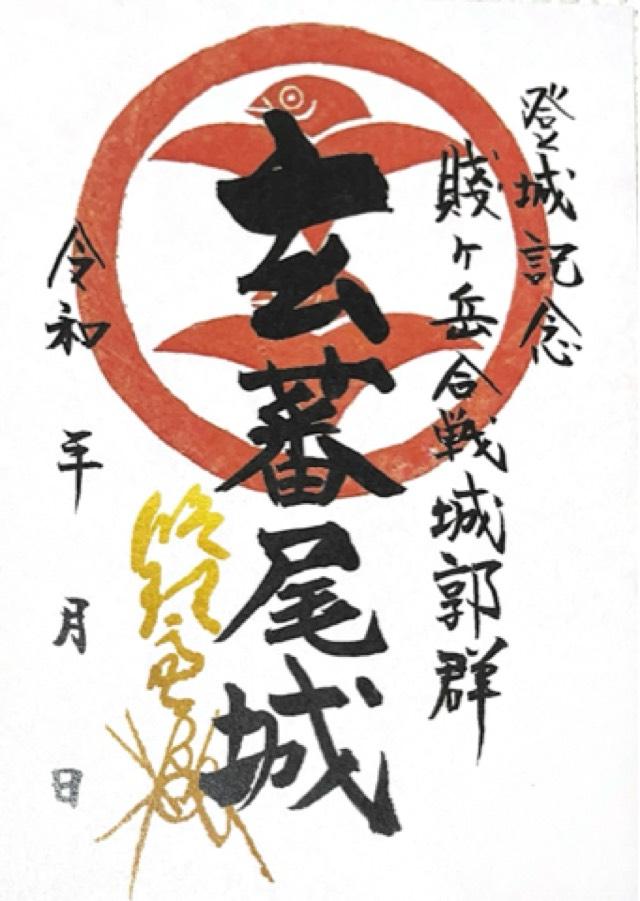 登城記念
賤ヶ岳合戦城郭群
玄蕃尾城
令和 年 月 日